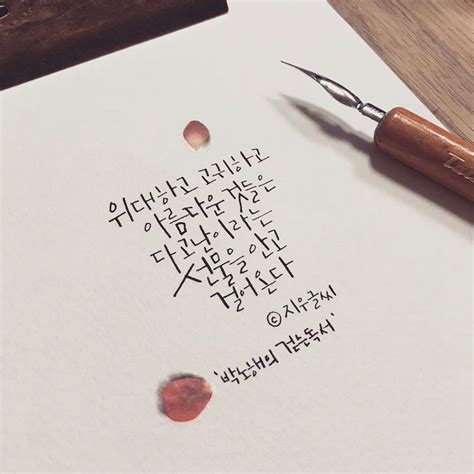 위대하고 고귀하고
아름다운 것들은
다 고난이라는
선물을 안고
걸어온다
©지우글씨
'박노해의 걷는독서'